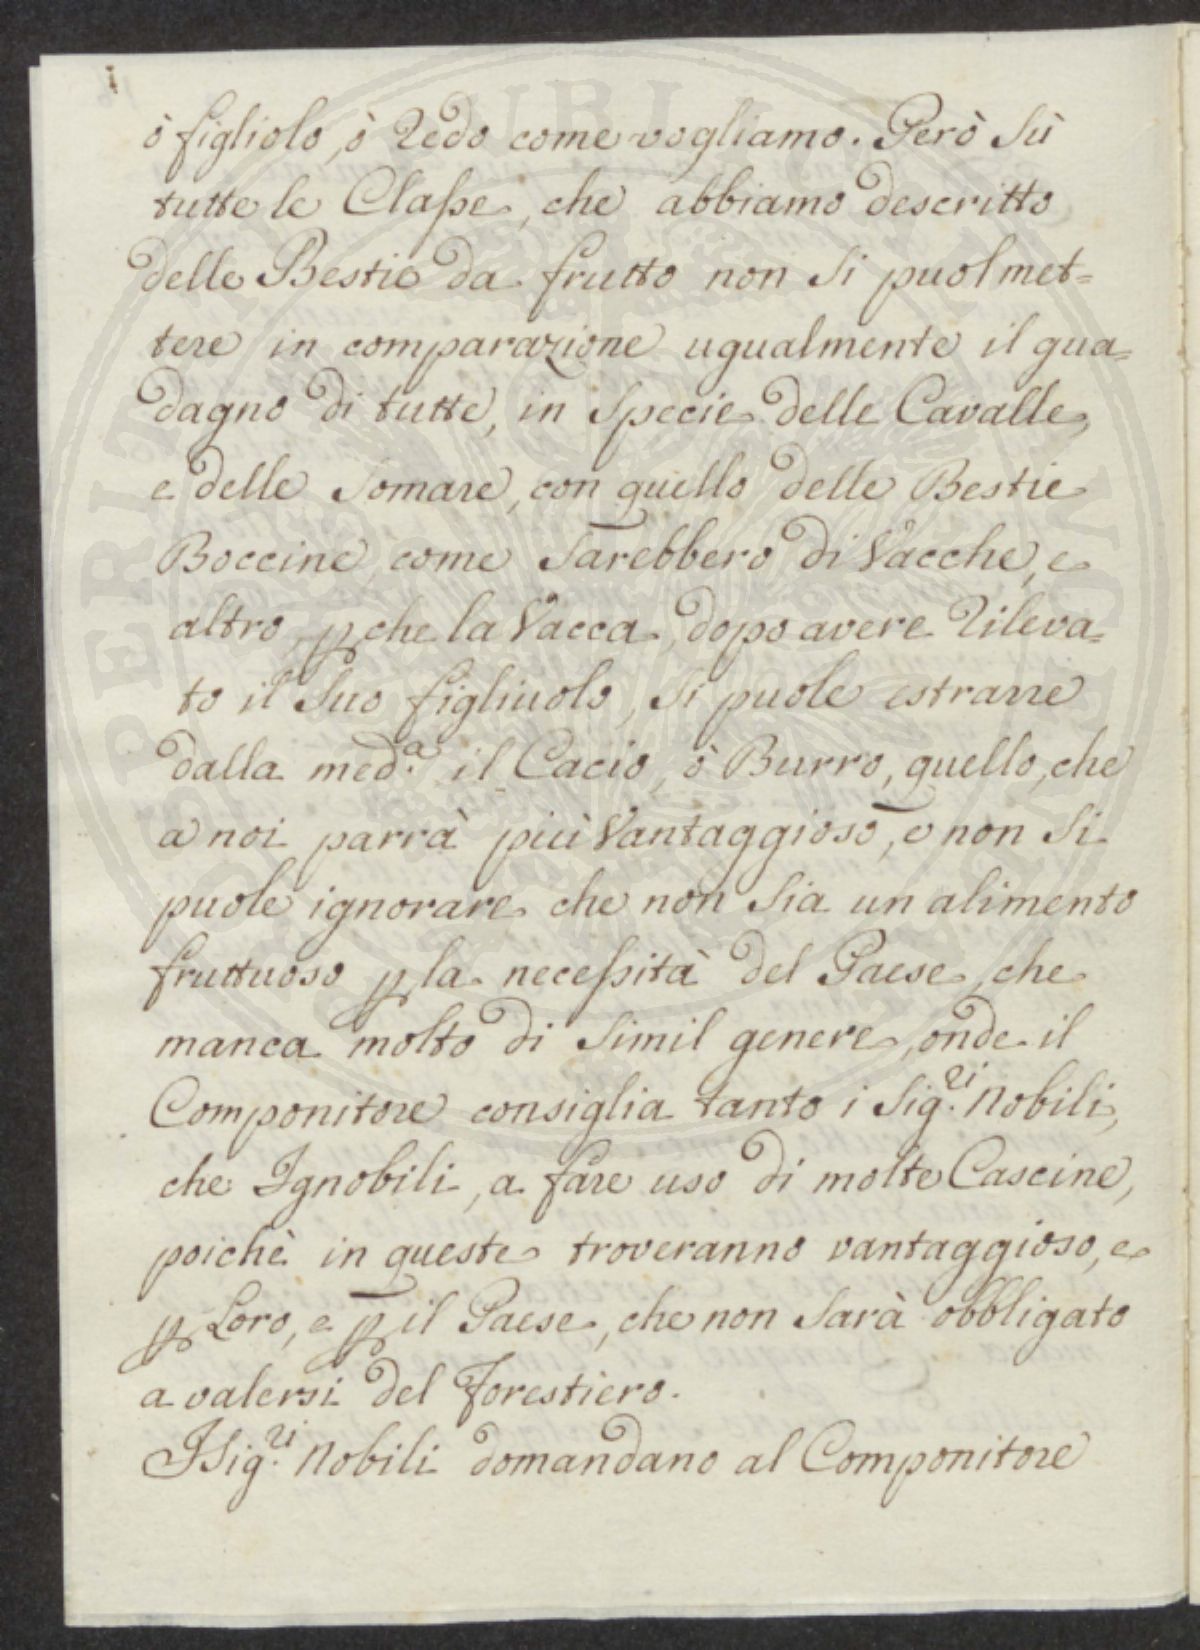 ò figliolo, ò Redo come vogliamo. Però Sù
tutte le Claſse, che abbiamo descritto
delle Bestie da frutto non Si puol met=
tere in comparazione ugualmente il gua=
dagno di tutte, in Specie delle Cavalle,
e delle Somare, con quello delle Bestie
Boccine, come Sarebbero di Vacche, e
altro, p che la Vacca, dopo avere rileva=
to il Suo figliuolo, Si puole estrarre
dalla med.ª il Cacio, ò Burro, quello, che
a noi parrà più Vantaggioso, e non Si
puole ignorare che non Sia un alimento
fruttuoso p la neceſsità del Paese, che
manca molto di Simil genere, onde il
Componitore consiglia tanto i Sig.ri Nobili,
che Ignobili, a fare uso di molte Cascine,
poichè in queste troveranno vantaggioso, e
p Loro, e p il Paese, che non Sarà obbligato
a valersi del Forestiero.
I Sig.ri Nobili domandano al Componitore